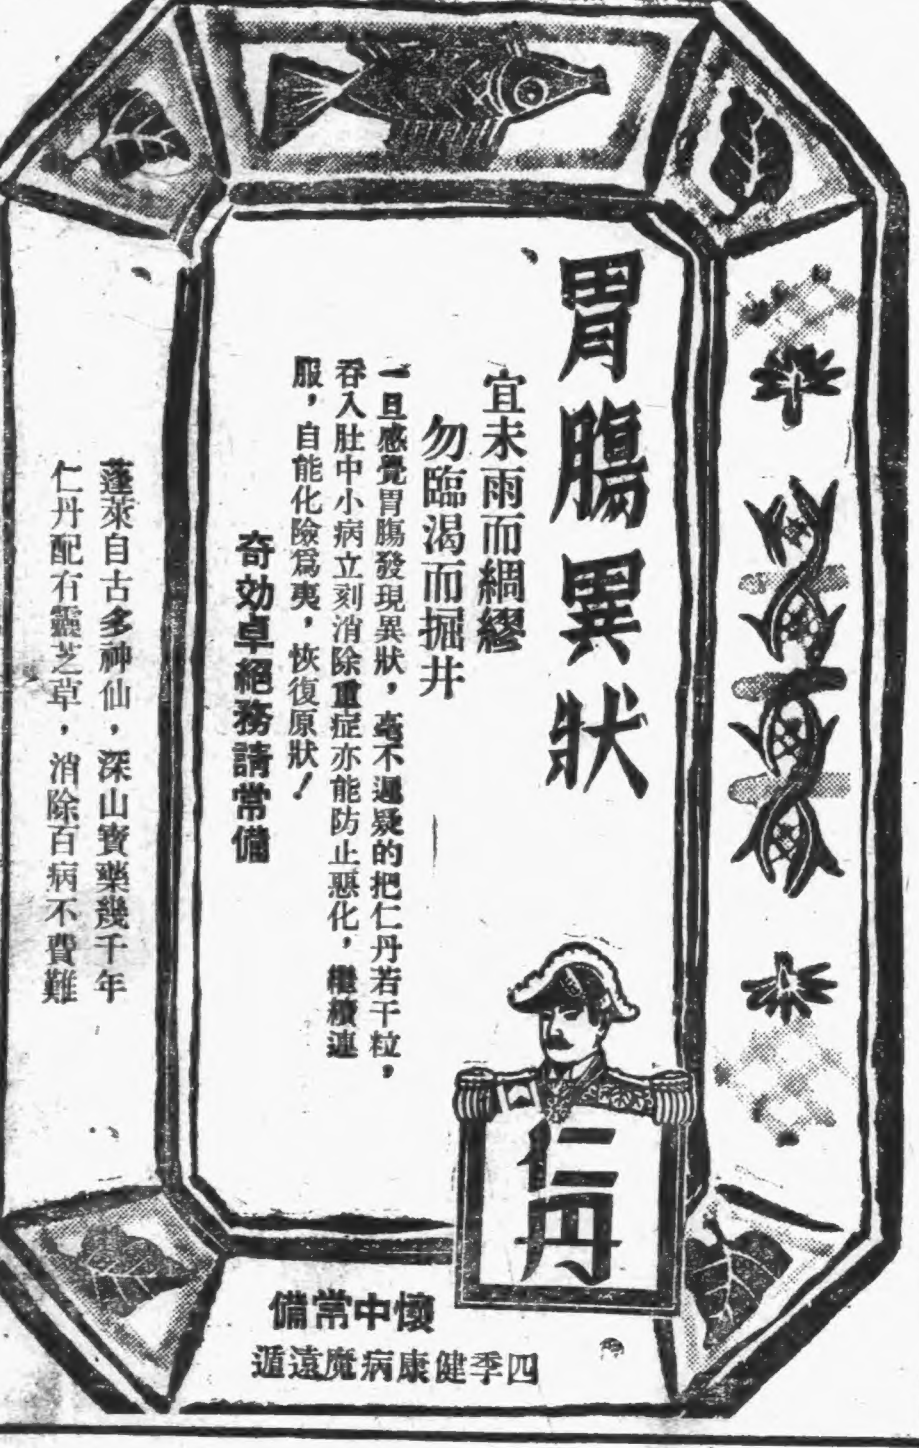 胃腸異狀
宜未雨而綢繆
勿臨渴而掘井
一旦感覺胃腸發現異狀，毫不遲疑的把仁丹若干粒，
吞入肚中小病立刻消除重症亦能防止惡化，繼續連
服，自能化險爲夷，恢復原狀！
奇効卓絕務請常備
蓬萊自古多神仙，深山寶藥幾千年
仁丹配有靈芝草，消除百病不費難
仁丹
懷中常備
四季健康病魔遠遁